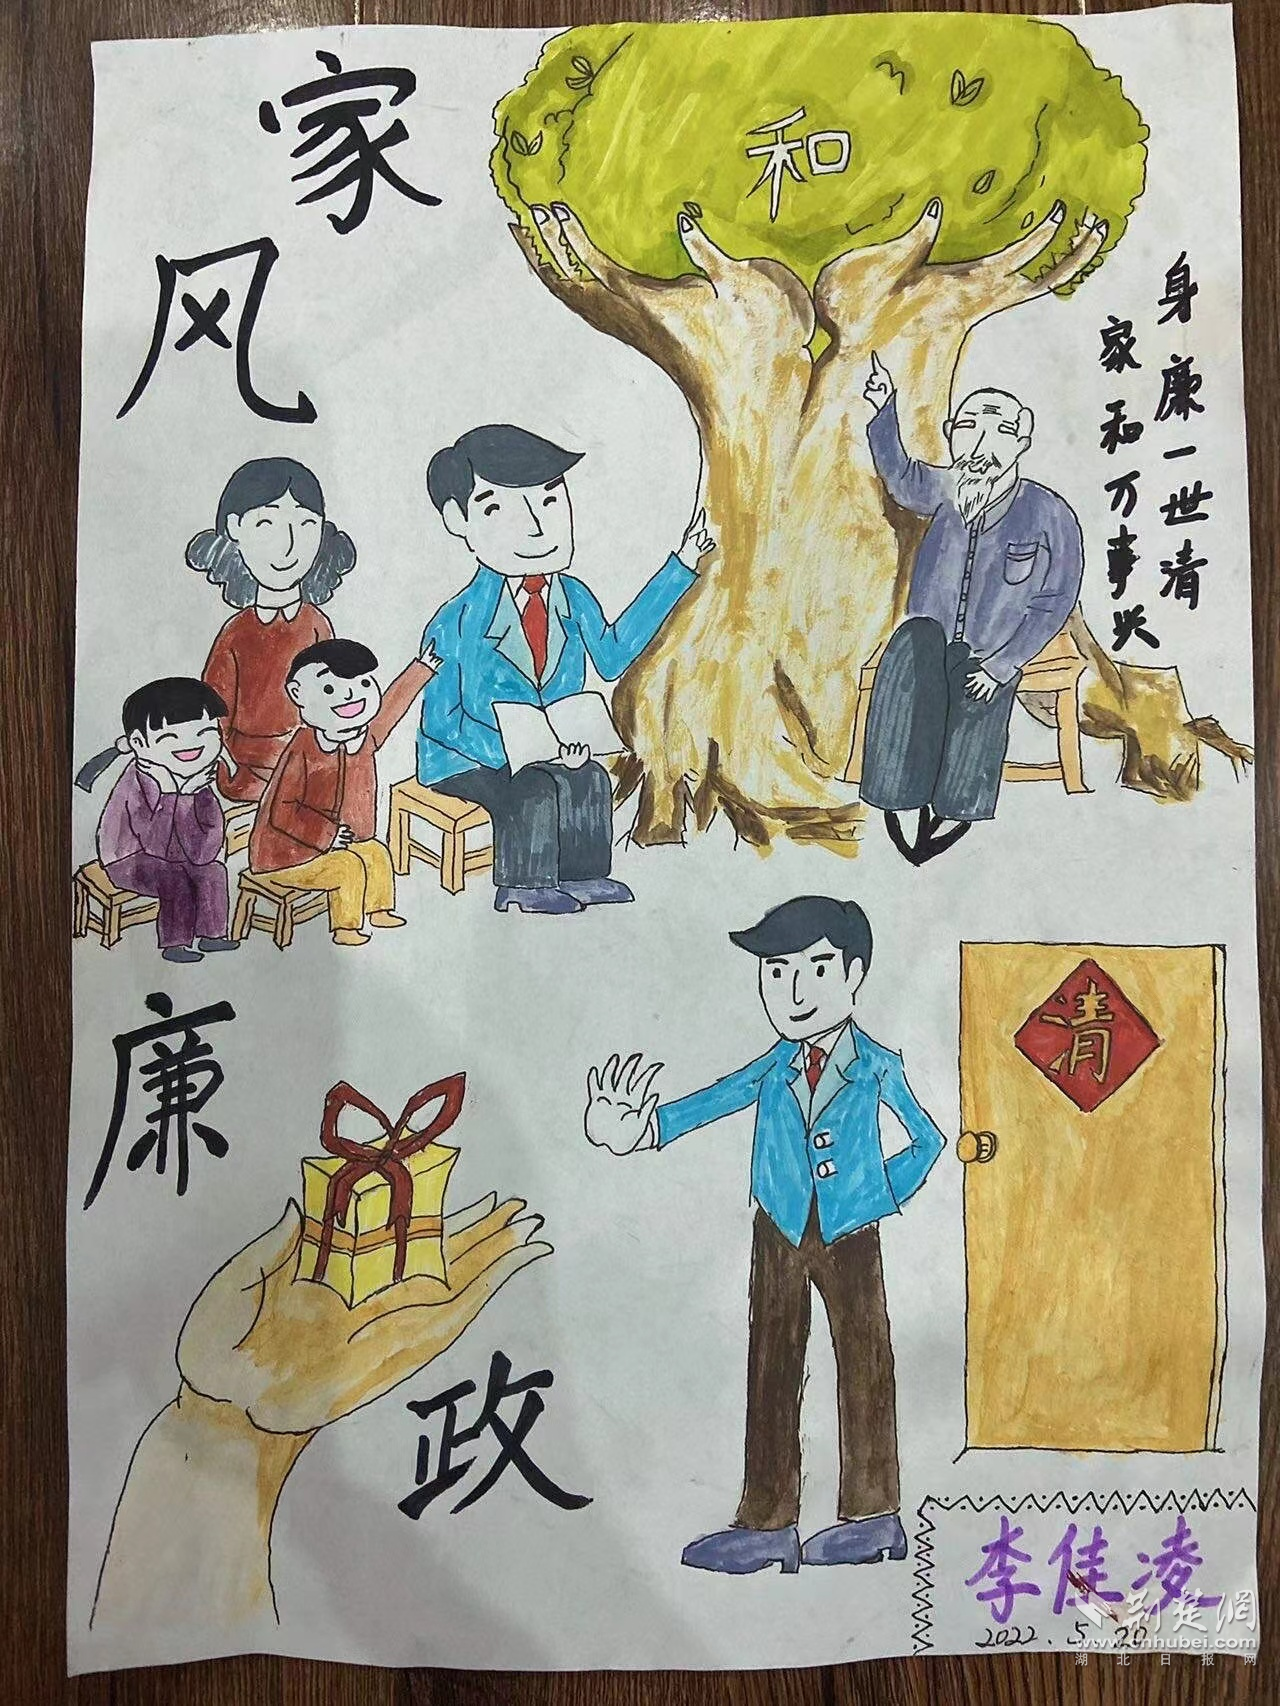 家
风
和
身廉一世清
家和万事兴
廉
清
政
李佳凌
2022.5.20
荆楚网
www.cnhubei.com
湖北日报网